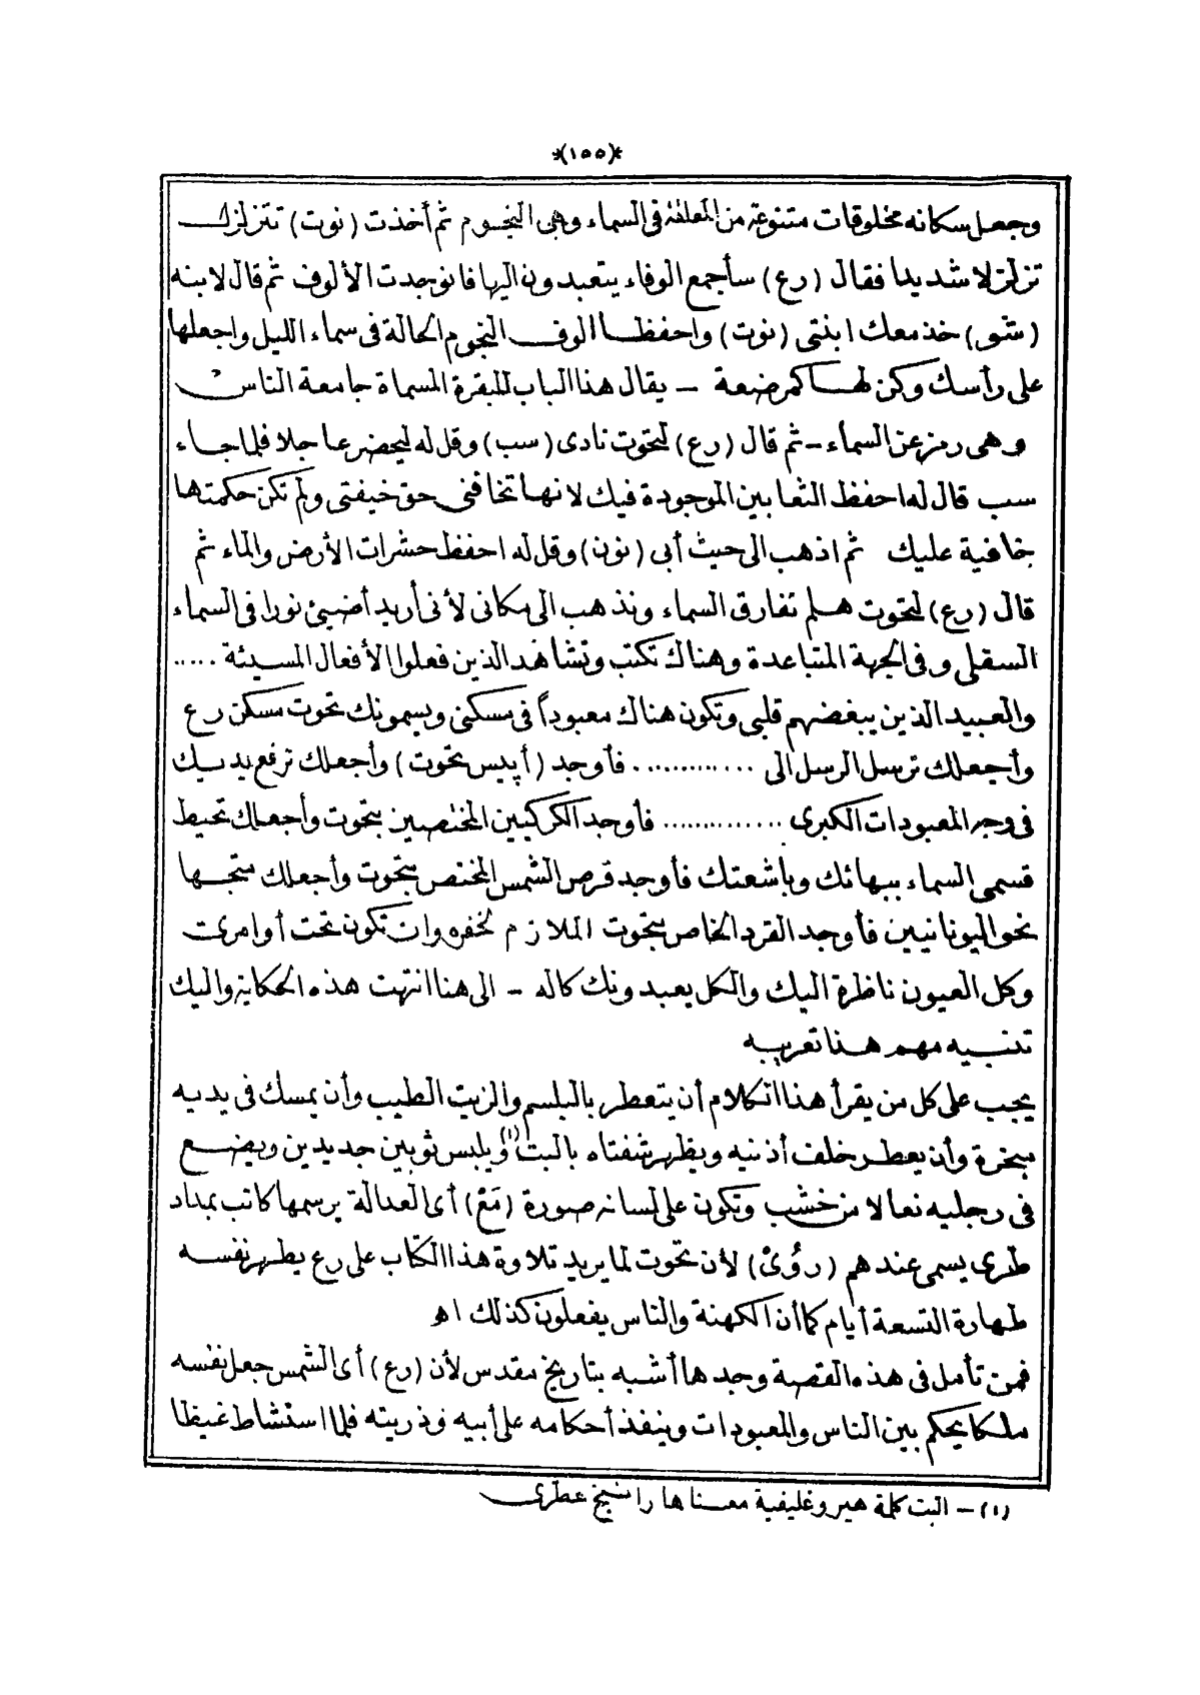 *(١٥٥)*
وجعل سكانه مخلوقات متنوعة من المعلقة فى السماء وهى النجوم ثم أخذت (نوت) تتزلزل
تزلزلا شديدا فقال (رع) سأجمع الوفاء يتعبدون اليها فانوجدت الألوف ثم قال لابنه
(شو) خذ معك ابنتى (نوت) واحفظا الوف النجوم الحالة فى سماء الليل واجعلها
على رأسك وكن لها كمرضعة – يقال هذا الباب للبقرة المسماة جامعة الناس
وهى رمز عن السماء – ثم قال (رع) لتحوت نادى (سب) وقل له ليحضر عاجلا فلما جاء
سب قال له احفظ الثعابين الموجودة فيك لانها تخافنى حق خيفتى ولم تكن حكمتها
خافية عليك ثم اذهب الى حيث أبى (نون) وقل له احفظ حشرات الأرض والماء ثم
قال (رع) لتحوت هلم نفارق السماء ونذهب الى مكانى لأنى أريد أضيئ نورا فى السماء
السفلى وفى الجهة المتباعدة وهناك تكتب وتشاهد الذين فعلوا الأفعال المسيئة .....
والعبيد الذين يبغضهم قلبى وتكون هناك معبوداً فى مسكنى ويسمونك تحوت مسكن رع
وأجعلك ترسل الرسل الى ............. فأوجد (أپيس تحوت) وأجعلك ترفع يديك
فى وجه المعبودات الكبرى .............. فأوجد الكركيين المختصين بتحوت وأجعلك تحيط
قسمى السماء ببهائك وباشعتك فأوجد قرص الشمس المختص بتحوت وأجعلك متجها
نحو اليونانيين فأوجد القرد الخاص بتحوت الملازم لخفره وان تكون تحت أوامرى
وكل العيون ناظرة اليك والكل يعبدونك كاله – الى هنا انتهت هذه الحكاية واليك
تنبيه مهم هذا تعريبه
يجب على كل من يقرأ هذا الكلام أن يتعطر بالبلسم والزيت الطيب وأن يمسك فى يديه
مبخرة وأن يعطر خلف أذنيه ويطهر شفتاه بالبت(١) ويلبس ثوبين جديدين ويضع
فى رجليه نعالا من خشب وتكون على لسانه صورة (مَعْ) أى العدالة يرسمها كاتب بمداد
طرى يسمى عندهم (رُوُىْ) لأن تحوت لما يريد تلاوة هذا الكتاب على رع يطهر نفسه
طهارة التسعة أيام كما أن الكهنة والناس يفعلون كذلك اه
فمن تأمل فى هذه القصة وجدها أشبه بتاريخ مقدس لأن (رع) أى الشمس جعل نفسه
ملكا يحكم بين الناس والمعبودات وينفذ أحكامه على أبيه وذريته فلما استشاط غيظا
(١) – البت كلمة هيروغليفية معناها راتينج عطرى